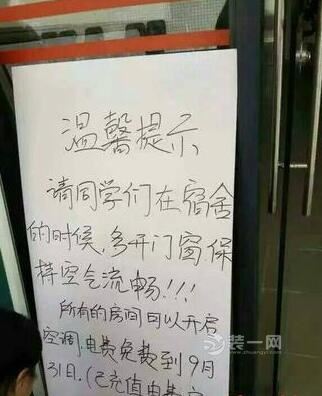 温馨提示
请同学们在宿舍
的时候,多开门窗保
持空气流畅!!!
所有的房间可以开启
空调,电费免费到9月
31日.(已充值电费
装一网
www.zhuangyi.com